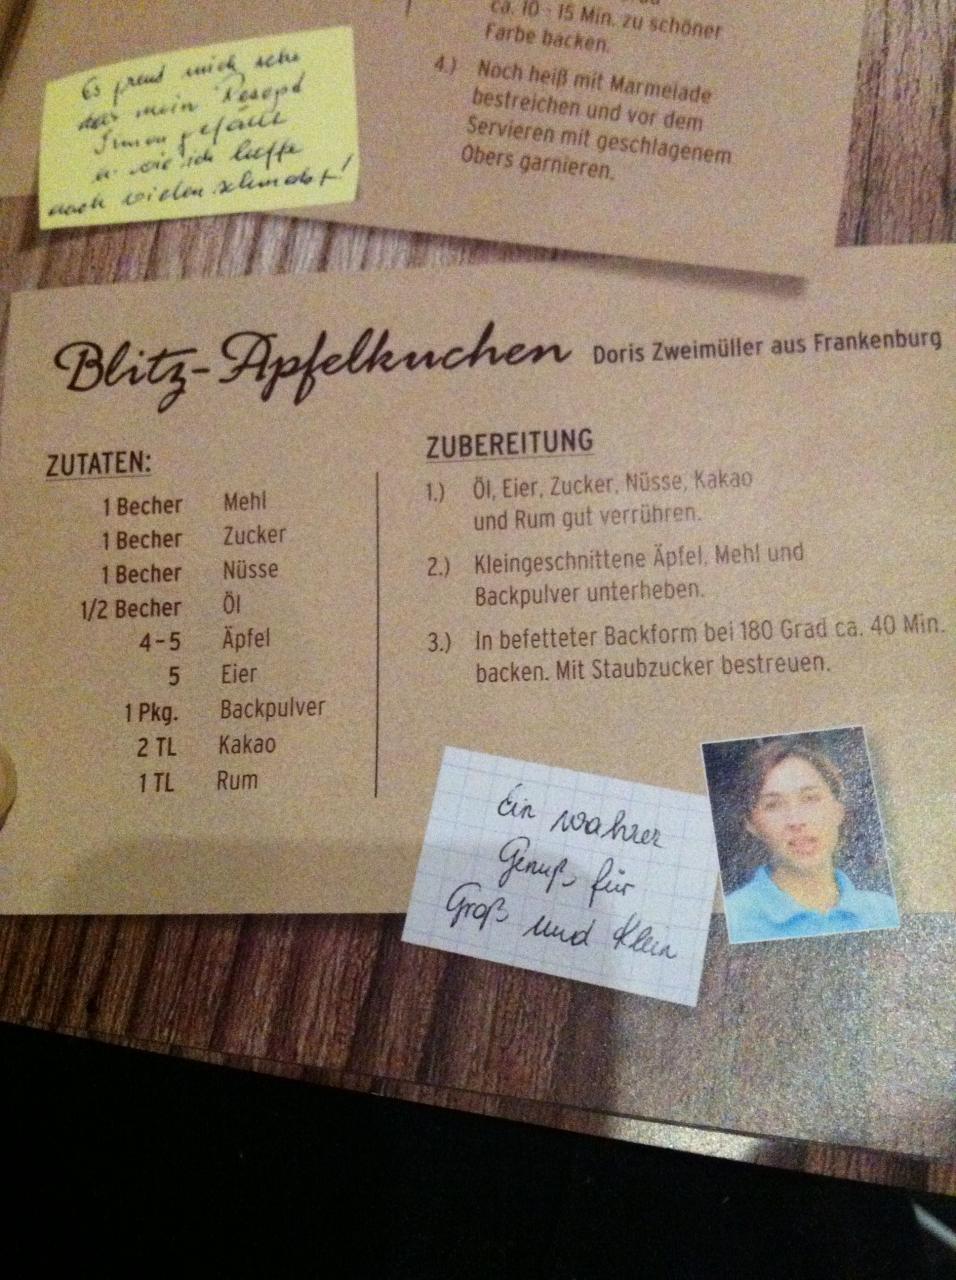 ca. 10 - 15 Min. zu schöner
Farbe backen.
4.) Noch heiß mit Marmelade
bestreichen und vor dem
Servieren mit geschlagenem
Obers garnieren.
Es freud mich sehr
das mein Resept
Ihnen gefällt
u. wie ich hoffe
auch vielen schmeckt!
Blitz-Apfelkuchen Doris Zweimüller aus Frankenburg
ZUTATEN:
1 Becher Mehl
1 Becher Zucker
1 Becher Nüsse
1/2 Becher Öl
4-5 Äpfel
5 Eier
1 Pkg. Backpulver
2 TL Kakao
1 TL Rum
ZUBEREITUNG
1.) Öl, Eier, Zucker, Nüsse, Kakao
und Rum gut verrühren.
2.) Kleingeschnittene Äpfel, Mehl und
Backpulver unterheben.
3.) In befetteter Backform bei 180 Grad ca. 40 Min.
backen. Mit Staubzucker bestreuen.
Ein wahrer
Genuß für
Groß und Klein